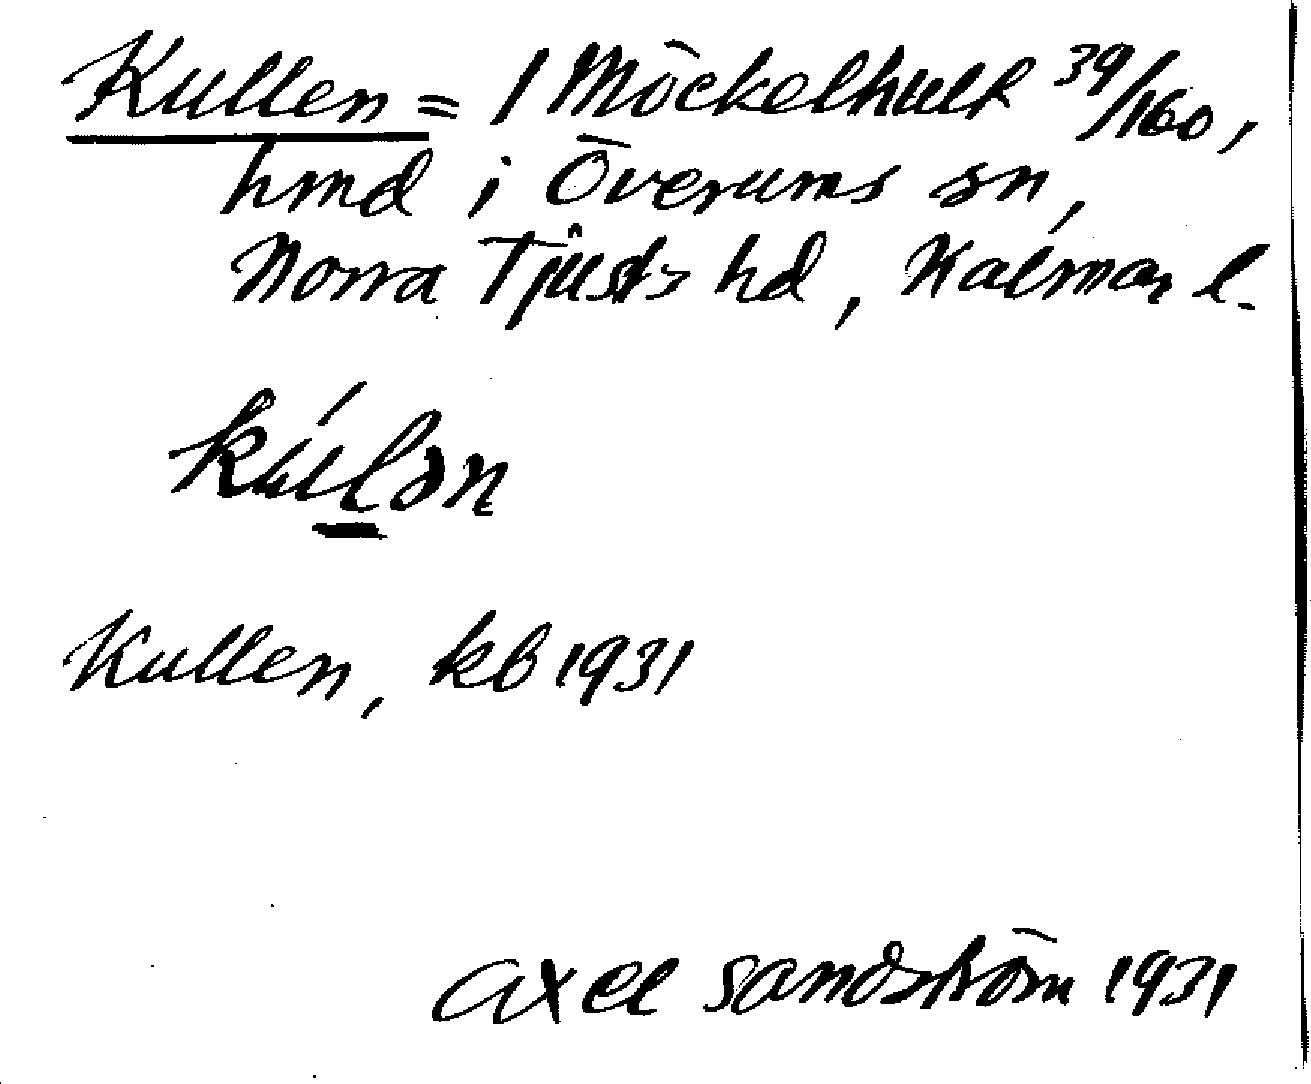 Kullen = 1 Möckelhult 39/160,
hmd i Överums sn,
Norra Tjusts hd, Kalmar l.
kúlən
Kullen, kb 1931
Axel Sandström 1931